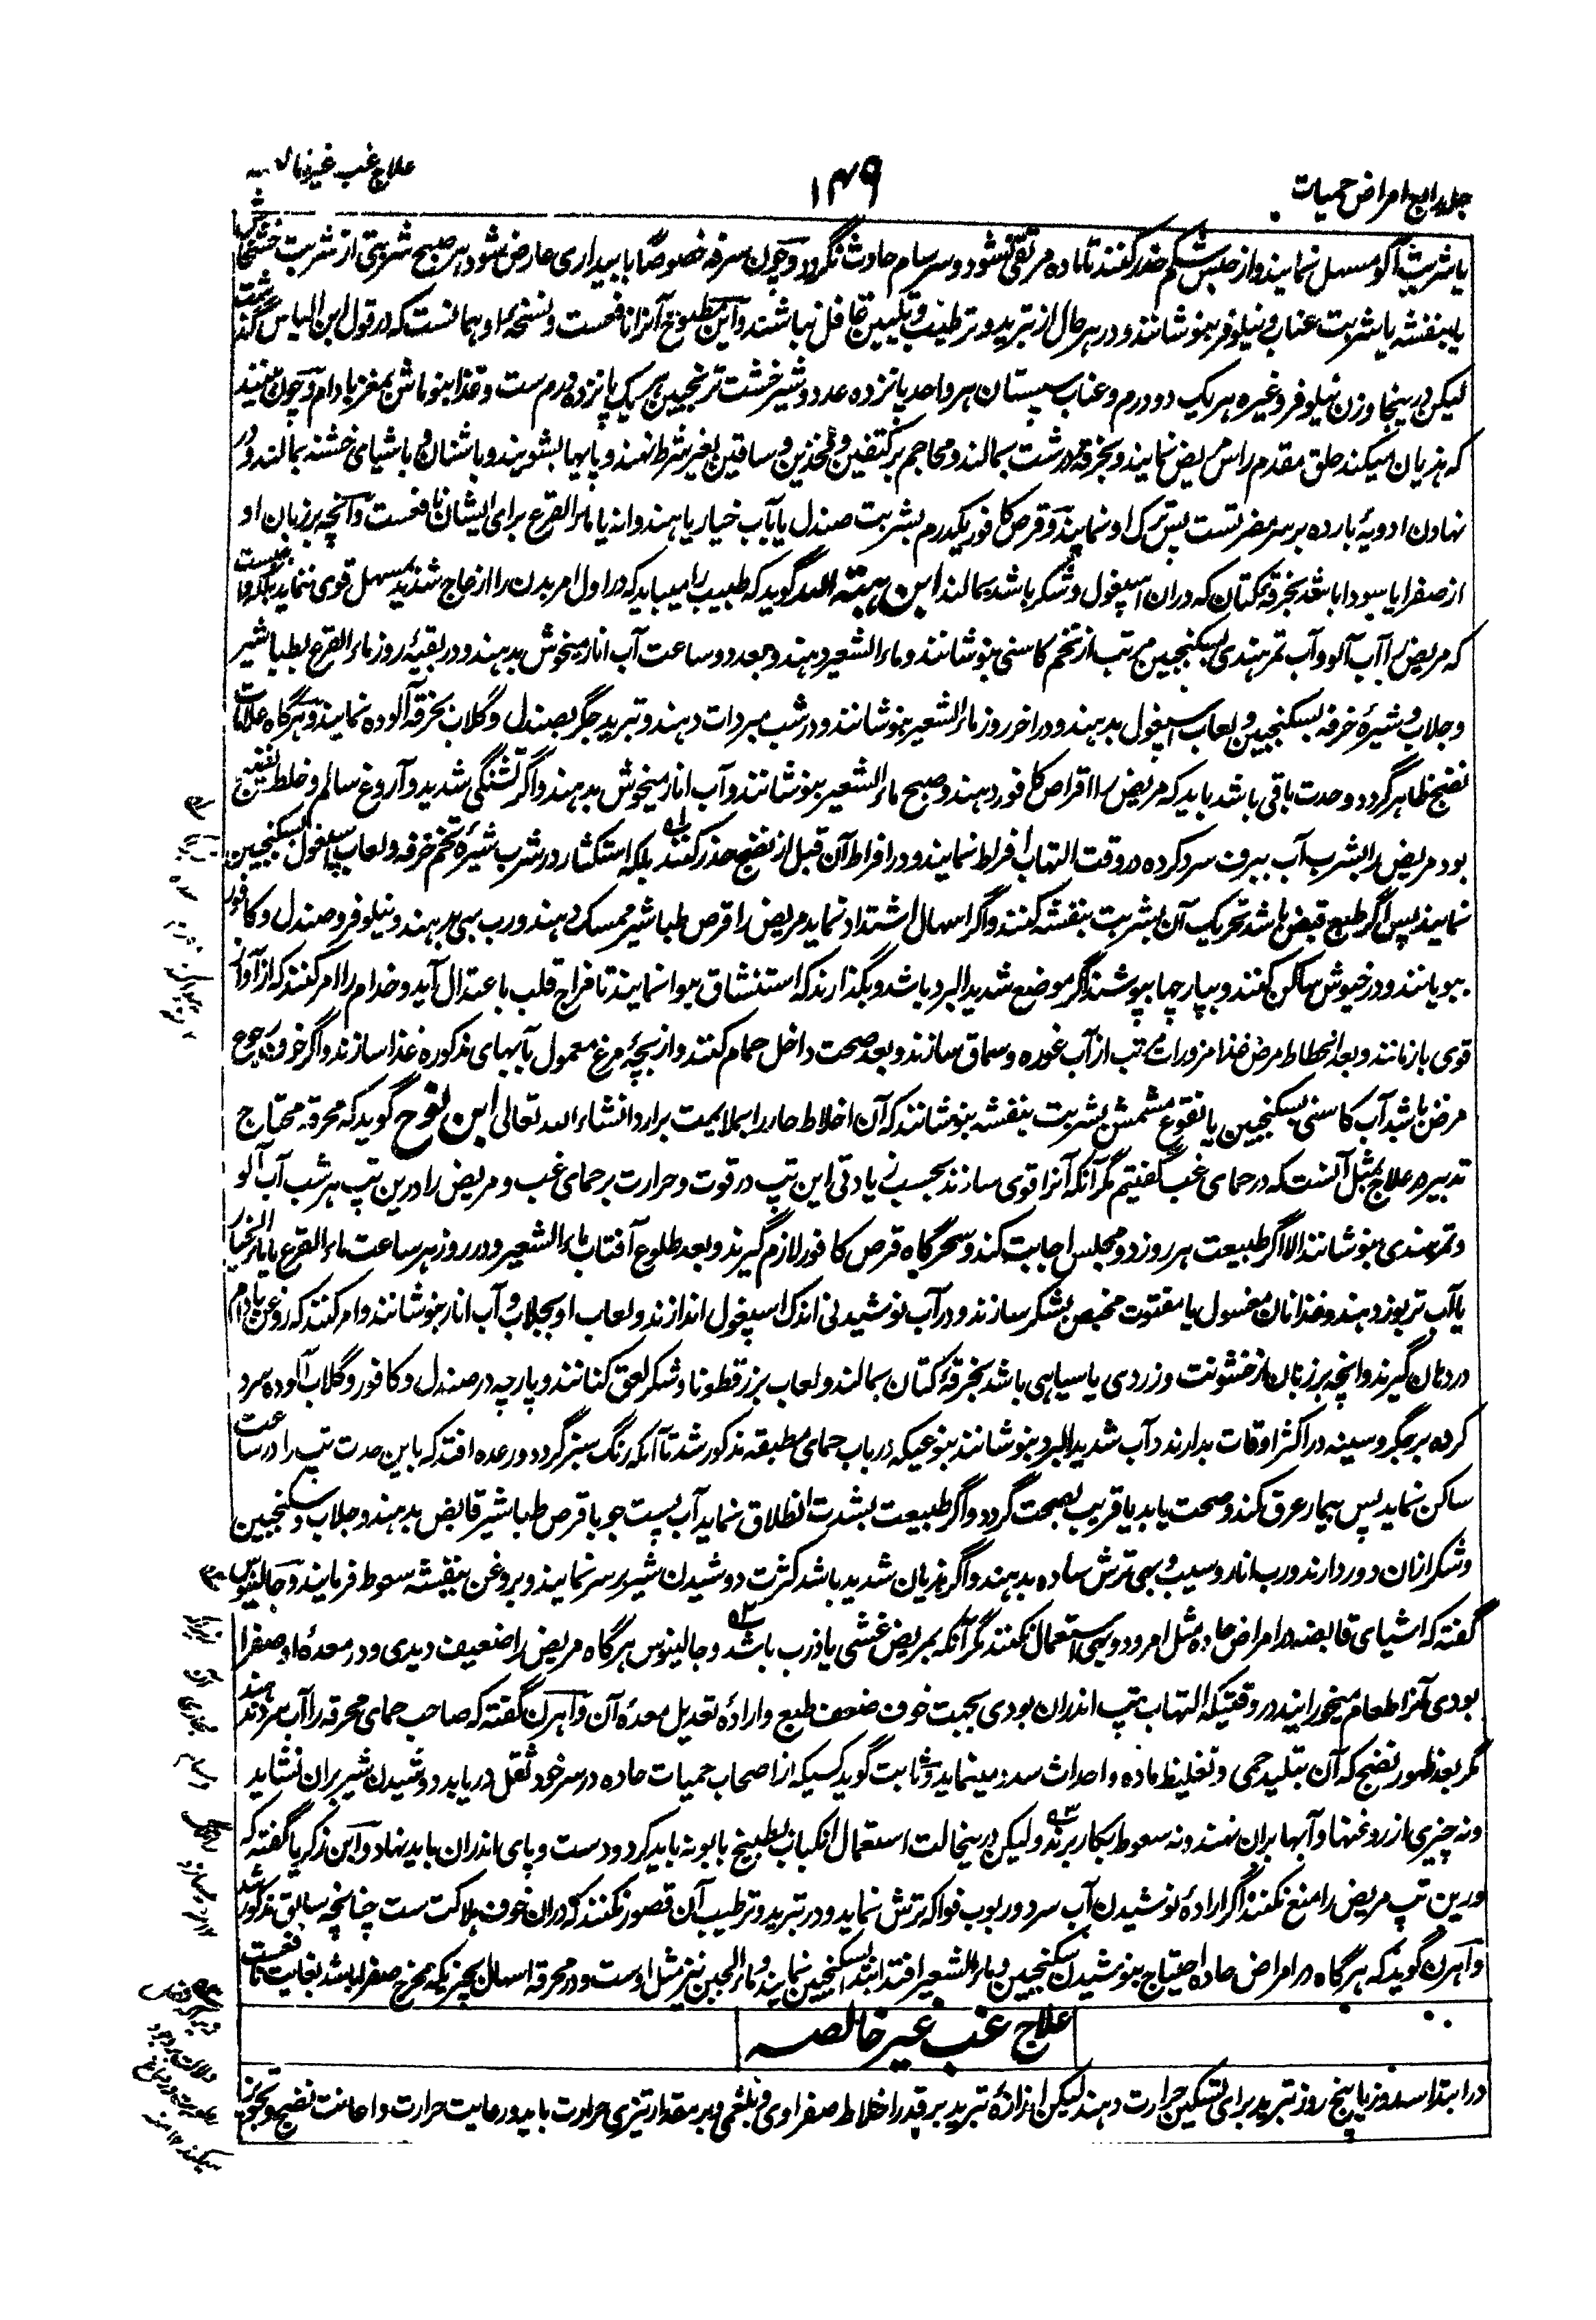 جلد رابع امراض حمیات
۱۴۹
علاج غب غیر خالصه
یا شربت آلو مسهل نمایند و از حبس شکم حذر کنند تا ماده مرتقی نشود و سرسام حادث نگردد و چون سرفه خصوصاً با بیداری عارض شود هر صبح شربتی از شربت خشخاش
یا بنفشه یا شربت عناب و نیلوفر بنوشانند و در هر حال از تبرید و ترطیب و تلیین غافل نباشند و این مطبوخ آنرا نافعست و نسخهٔ او همانست که در قول ابن الیاس گذشت
لیکن درینجا وزن نیلوفر و غیره هر یک دو درم و عناب سپستان هر واحد پانزده عدد و شیرخشت ترنجبین هر یک پانزده درم ست و غذا بنو ماش بمغز بادام و چون بینند
که هذیان میکند حلق مقدم راس مریض نمایند و بخرقه درشت بمالند و محاجم بر کتفین و فخذین و ساقین بغیر شرط نهند و پایها بشویند و باشنان و باشیای خشنه بمالند و در
نهادن ادویهٔ بارده بر سر مضرتست پس ترک او نمایند و قرص کافور یکدرم بشربت صندل یا بآب خیار یا هندوانه یا ماء القرع برای ایشان نافعست و آنچه بر زبان او
از صفرا یا سودا باشد بخرقهٔ کتان که دران اسپغول و شکر باشد بمالند ابن هبته الله گوید که طبیب را میباید که در اول امر بدن را ازعاج شدید بمسهل قوی ننماید بلکه واجبست
که مریض را آب آلو و آب تمرهندی بسکنجبین مرتب از تخم کاسنی بنوشانند و ماء الشعیر دهند و بعد دو ساعت آب انار میخوش بدهند و در بقیهٔ روز ماء القرع بطباشیر
و جلاب و شیرهٔ خرفه بسکنجبین و لعاب اسپغول بدهند و در آخر روز ماء الشعیر بنوشانند و در شب مبردات دهند و تبرید جگر بصندل و گلاب بخرقه آلوده نمایند و هرگاه علامات
نضج ظاهر گردد و حدت باقی باشد باید که مریض را اقراص کافور دهند و صبح ماء الشعیر بنوشانند و آب انار میخوش بدهند و اگر تشنگی شدید و آروغ سالم و خلط
بود مریض را بشرب آب ببرف سرد کرده در وقت التهاب افراط نمایند و در افراط آن قبل از نضج حذر کنند بلکه استکثار در شرب شیرهٔ تخم خرفه و لعاب اسپغول بسکنجبین
نمایند پس اگر طبع قبض باشد تحریک آن بشربت بنفشه کنند و اگر اسهال اشتداد نماید مریض را قرص طباشیر ممسک دهند و رب بهی بدهند و نیلوفر و صندل و کافور
ببویانند و در خیوش ساکن کنند و بپارچها بپوشند اگر موضع شدید البرد باشد و بگذارند که استنشاق بهوا نمایند تا مزاج قلب باعتدال آید و خدام را امر کنند که از آواز
قوی بازمانند و بعد انحطاط مرض غذا مزورات مرتب از آب غوره و سماق سازند و بعد صحت داخل حمام کنند و از بچهٔ مرغ معمول بآبهای مذکوره غذا سازند و اگر خوف رجوع
مرض باشد آب کاسنی بسکنجبین یا نقوع مشمش بشربت بنفشه بنوشانند که آن اخلاط حار را بملایمت برارد انشاء الله تعالی ابن نوح گوید که محرقه محتاج
تدبیر و علاج بمثل آنست که در حمای غب گفتیم مگر آنکه آنرا قوی سازند بحسب زیادتی این تپ در قوت و حرارت بر حمای غب و مریض را درین تپ هر شب آب آلو
و تمرهندی بنوشانند الا اگر طبیعت هر روز دو مجلس اجابت کند و سحرگاه قرص کافور لازم گیرند و بعد طلوع آفتاب ماء الشعیر و در روز هر ساعت ماء القرع یا ماء الخیار
یا آب تربوز دهند و غذا نان مغسول یا مفتوت مخبص بشکر سازند و در آب نوشیدنی اندک اسپغول اندازند و لعاب او بجلاب و آب انار بنوشانند و امر کنند که روغن بادام
در دهان گیرند و آنچه بر زبان از خشونت و زردی یا سیاهی باشد بخرقهٔ کتان بمالند و لعاب بزرقطونا و شکر لعق کنانند و پارچه در صندل و کافور و گلاب آلوده سرد
کرده بر جگر و سینه در اکثر اوقات بدارند و آب شدید البرد بنوشانند بنوعیکه در باب حمای مطبقه مذکور شد تا آنکه رنگ سبز گردد و رعده افتد که باین حدت تپ را در ساعت
ساکن نماید پس بیمار عرق کند و صحت یابد یا قریب بصحت گردد و اگر طبیعت بشدت انطلاق نماید آب پست جو با قرص طباشیر قابض بدهند و جلاب و سکنجبین
و شکر ازان دور دارند و رب انار و سیب و بهی ترش ساده بدهند و اگر هذیان شدید باشد کثرت دوشیدن شیر بر سر نمایند و بروغن بنفشه سعوط فرمایند و جالینوس
گفته که اشیای قابضه در امراض حاده مثل امرود و بهی استعمال نکنند مگر آنکه بمریض غشی یا ذرب باشد و جالینوس هرگاه مریض را ضعیف دیدی و در معدهٔ او صفرا
بودی آنرا طعام میخورانید در وقتیکه التهاب تپ اندران بودی بجهت خوف ضعف طبع و ارادهٔ تعدیل معدهٔ آن و اهرن گفته که صاحب حمای محرقه را آب سرد ندهند
مگر بعد ظهور نضج که آن تبلید حمی و تغلیظ ماده و احداث سدد مینماید و ثابت گوید کسیکه از اصحاب حمیات حاده در سر خود ثقل دریابد دوشیدن شیر بران نشاید
و نه چیزی از روغنها و آبها بران نهند و نه سعوط بکار برند و لیکن درینحالت استعمال انکباب بطبیخ بابونه باید کرد و دست و پای اندران باید نهاد و ابن زکریا گفته که
درین تپ مریض را منع نکنند اگر ارادهٔ نوشیدن آب سرد و ربوب فواکه ترش نماید و در تبرید و ترطیب آن قصور نکنند که دران خوف هلاکت ست چنانچه سابق مذکور شد
و اهرن گوید که هرگاه در امراض حاده احتیاج بنوشیدن سکنجبین و ماء الشعیر افتد ابتدا بسکنجبین نمایند و ماء الجبن نیز مثل اوست و در محرقه اسهال بچیزیکه مخرج صفرا باشد بغایت نافعست
علاج غب غیر خالصه
در ابتدا سه روز یا پنج روز تبرید برای تسکین حرارت دهند لیکن اندازهٔ تبرید بر قدر اخلاط صفراوی و بلغمی و بر مقدار تیزی حرارت باید و رعایت حرارت و اعانت نضج و تجویز